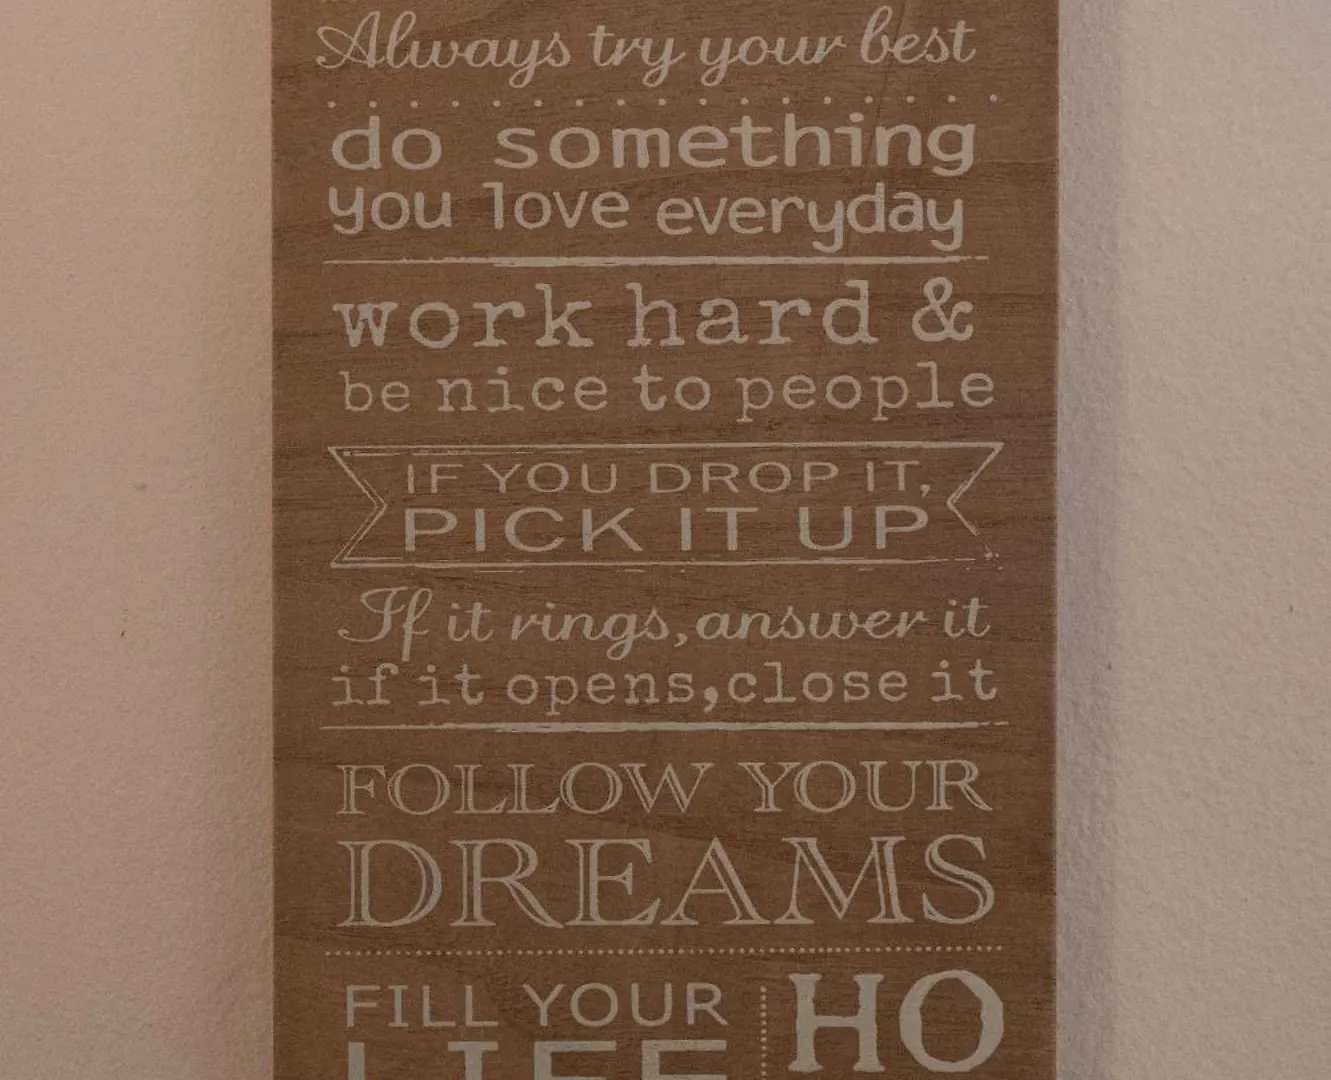 Always try your best
do something
you love everyday
work hard &
be nice to people
IF YOU DROP IT,
PICK IT UP
If it rings, answer it
if it opens, close it
FOLLOW YOUR
DREAMS
FILL YOUR
LIFE
HO